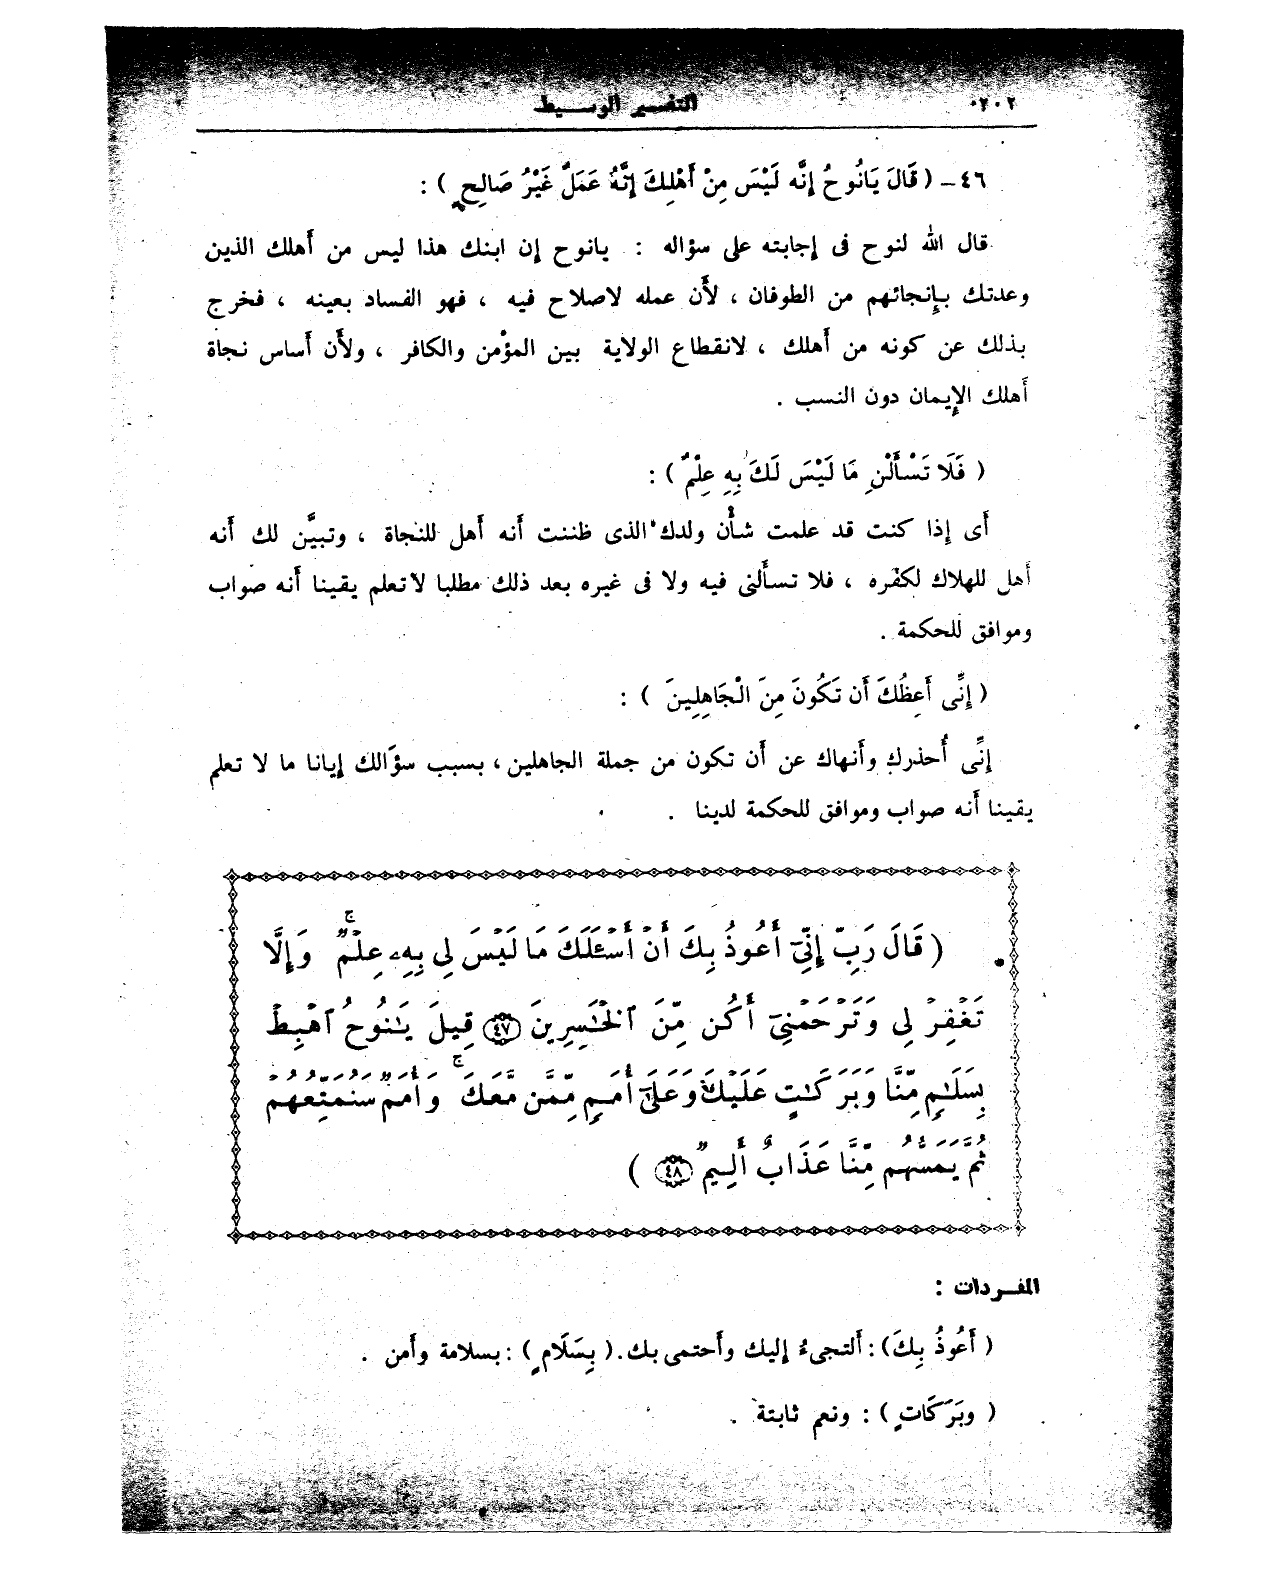 ٢٠٢ التفسير الوسيط
٤٦ - ( قَالَ يَانُوحُ إِنَّه لَيْسَ مِنْ أَهْلِكَ إِنَّهُ عَمَلٌ غَيْرُ صَالِحٍ ) :
قال الله لنوح فى إجابته على سؤاله : يانوح إن ابنك هذا ليس من أهلك الذين
وعدتك بإنجائهم من الطوفان ، لأن عمله لاصلاح فيه ، فهو الفساد بعينه ، فخرج
بذلك عن كونه من أهلك ، لانقطاع الولاية بين المؤمن والكافر ، ولأن أساس نجاة
أهلك الإيمان دون النسب .
( فَلَا تَسْأَلْنِ مَا لَيْسَ لَكَ بِهِ عِلْمٌ ) :
أى إذا كنت قد علمت شأن ولدك الذى ظننت أنه أهل للنجاة ، وتبيَّن لك أنه
أهل للهلاك لكفره ، فلا تسألنى فيه ولا فى غيره بعد ذلك مطلبا لاتعلم يقينا أنه صواب
وموافق للحكمة .
( إِنِّى أَعِظُكَ أَن تَكُونَ مِنَ الْجَاهِلِينَ ) :
إنِّى أُحذرك وأنهاك عن أن تكون من جملة الجاهلين ، بسبب سؤالك إيانا ما لا تعلم
يقينا أنه صواب وموافق للحكمة لدينا .
( قَالَ رَبِّ إِنِّىٓ أَعُوذُ بِكَ أَنْ أَسْـَٔلَكَ مَا لَيْسَ لِى بِهِۦ عِلْمٌ ۖ وَإِلَّا
تَغْفِرْ لِى وَتَرْحَمْنِىٓ أَكُن مِّنَ ٱلْخَٰسِرِينَ ﴿٤٧﴾ قِيلَ يَٰنُوحُ ٱهْبِطْ
بِسَلَٰمٍ مِّنَّا وَبَرَكَٰتٍ عَلَيْكَ وَعَلَىٰٓ أُمَمٍ مِّمَّن مَّعَكَ ۚ وَأُمَمٌ سَنُمَتِّعُهُمْ
ثُمَّ يَمَسُّهُم مِّنَّا عَذَابٌ أَلِيمٌ ﴿٤٨﴾ )
المفردات :
( أَعُوذُ بِكَ) : ألتجىءُ إليك وأحتمى بك . ( بِسَلَامٍ ) : بسلامة وأمن .
( وبَرَكَاتٍ ) : ونعم ثابتة .